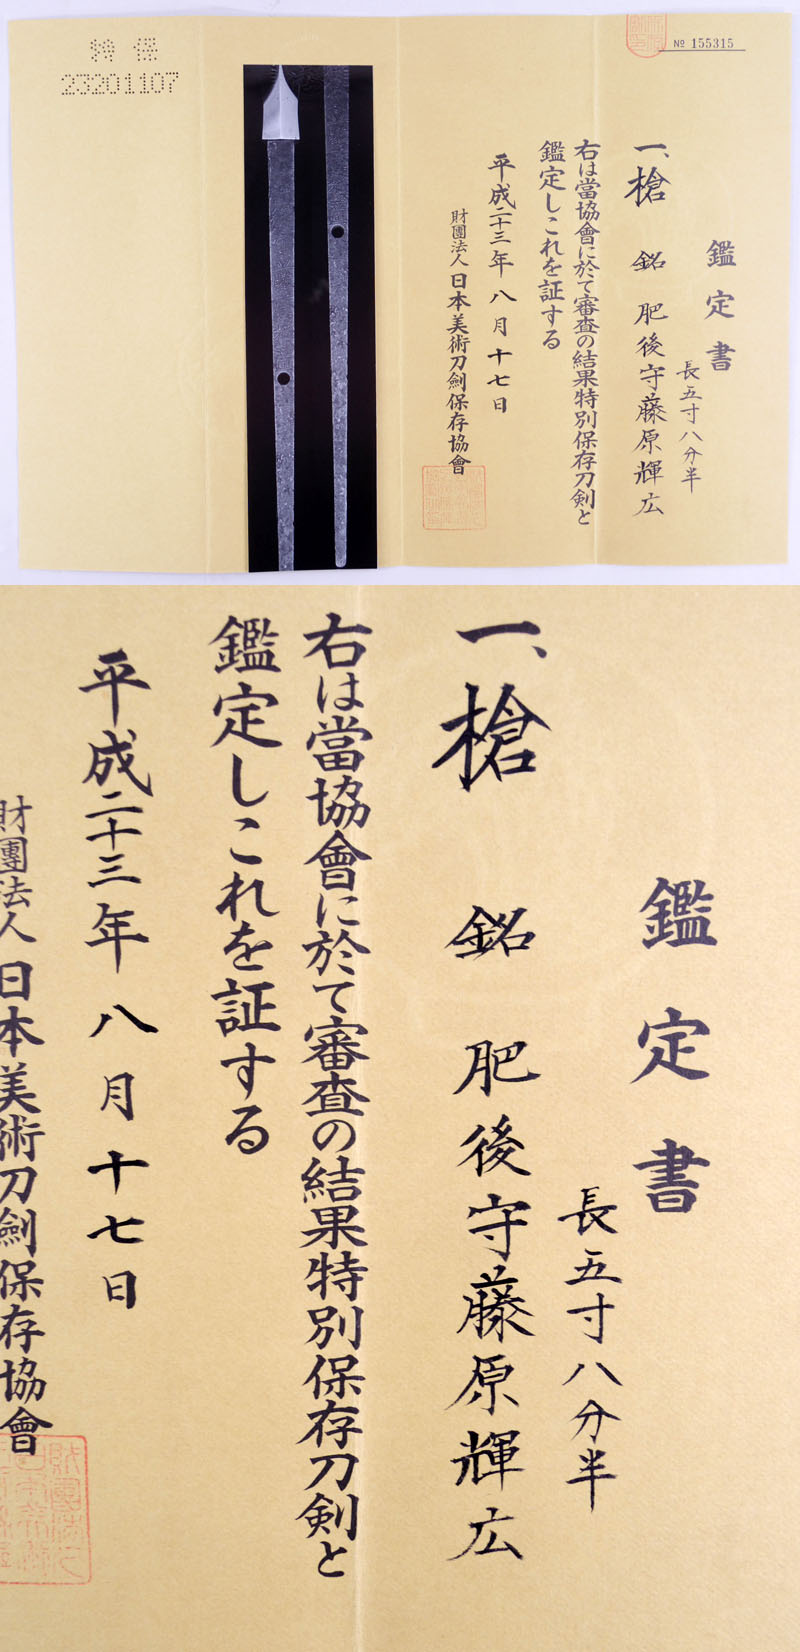 特保
23201107
№ 155315
鑑定書
長五寸八分半
一、槍 銘 肥後守藤原輝広
右は當協會に於て審査の結果特別保存刀剣と
鑑定しこれを証する
平成二十三年八月十七日
財團法人日本美術刀劍保存協會
鑑定書
長五寸八分半
一、槍 銘 肥後守藤原輝広
右は當協會に於て審査の結果特別保存刀剣と
鑑定しこれを証する
平成二十三年八月十七日
財團法人日本美術刀劍保存協會